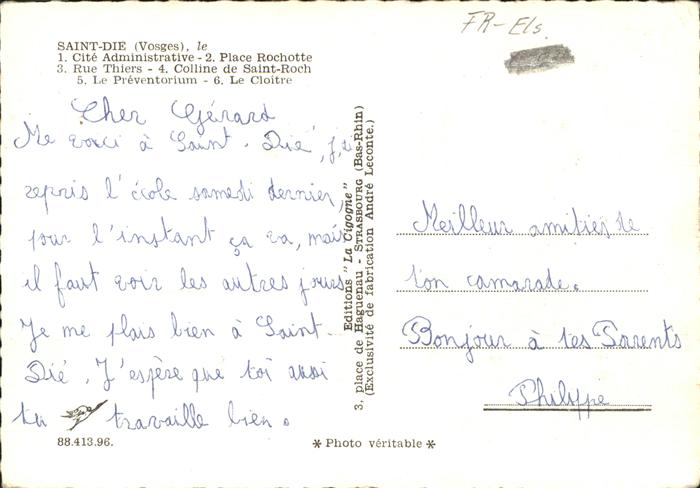 FR-Els.
SAINT-DIE (Vosges), le
1. Cité Administrative - 2. Place Rochotte
3. Rue Thiers - 4. Colline de Saint-Roch
5. Le Préventorium - 6. Le Cloître
Cher Gérard
Me voici à Saint-Dié, j'ai
repris l'école samedi dernier,
pour l'instant ça va, mais
il faut voir les autres jours.
Je me plais bien à Saint-
Dié. J'espère que toi aussi
tu travaille bien.
88.413.96.
Editions "La Cigogne"
3, place de Haguenau - STRASBOURG (Bas-Rhin)
(Exclusivité de fabrication André Leconte.)
Meilleur amitiés de
ton camarade.
Bonjour à tes Parents
Philippe
* Photo véritable *